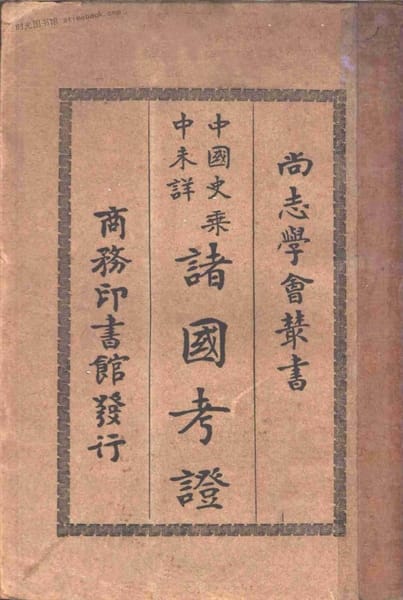 尚志學會叢書
中國史乘
中未詳
諸國考證
商務印書館發行
时光图书馆 atimebook.com